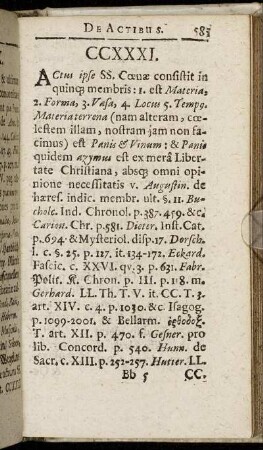 DE ACTIBUS. 583
CCXXXI.
ACtus ipse SS. Cœnæ consistit in
quinq; membris: 1. est Materia,
2. Forma, 3. Vasa, 4. Locus 5. Tempq.
Materia terrena (nam alteram, cœ-
lestem illam, nostram jam non fa-
cimus) est Panis & Vinum; & Panis
quidem azymus est ex merâ Liber-
tate Christiana, absq; omni opi-
nione necessitatis v. Augustin. de
hæres. indic. membr. ult. §. II. Bu-
cholc. Ind. Chronol. p. 387. 459. &c.
Carion. Chr. p. 581. Dieter. Inst. Cat.
p. 694. & Mysteriol. disp. 17. Dorsch.
l. c. §. 25. p. 117. it. 134-172. Eckard.
Fascic. c. XXVI. qv. 3. p. 631. Fabr.
Polit. K. Chron. p. III. p. 118. m.
Gerhard. LL. Th. T. V. it CC. T. 3.
art. XIV. c. 4. p. 1030. &c. Isagog.
p. 1099-2001. & Bellarm. ὀρθοδοξ.
T. art. XII. p. 470. f. Gesner. pro
lib. Concord. p. 540. Hunn. de
Sacr. c. XIII. p. 252-257. Hutter. LL.
Bb 5 CC.